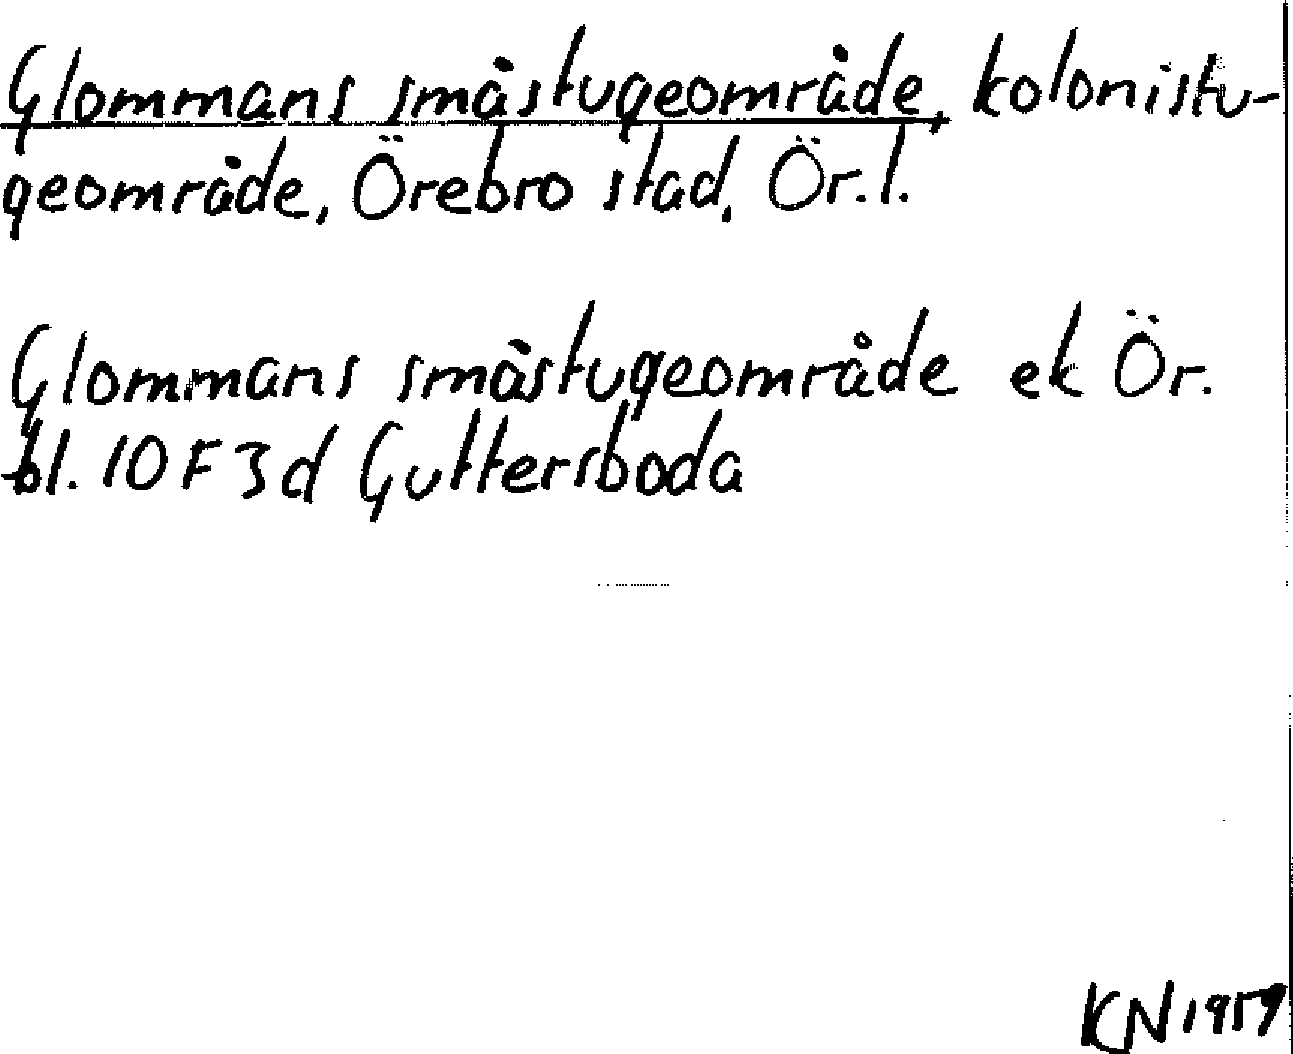 Glommans småstugeområde, kolonistu-
geområde, Örebro stad, Ör.l.
Glommans småstugeområde ek Ör.
bl. 10F3d Guttersboda
KN